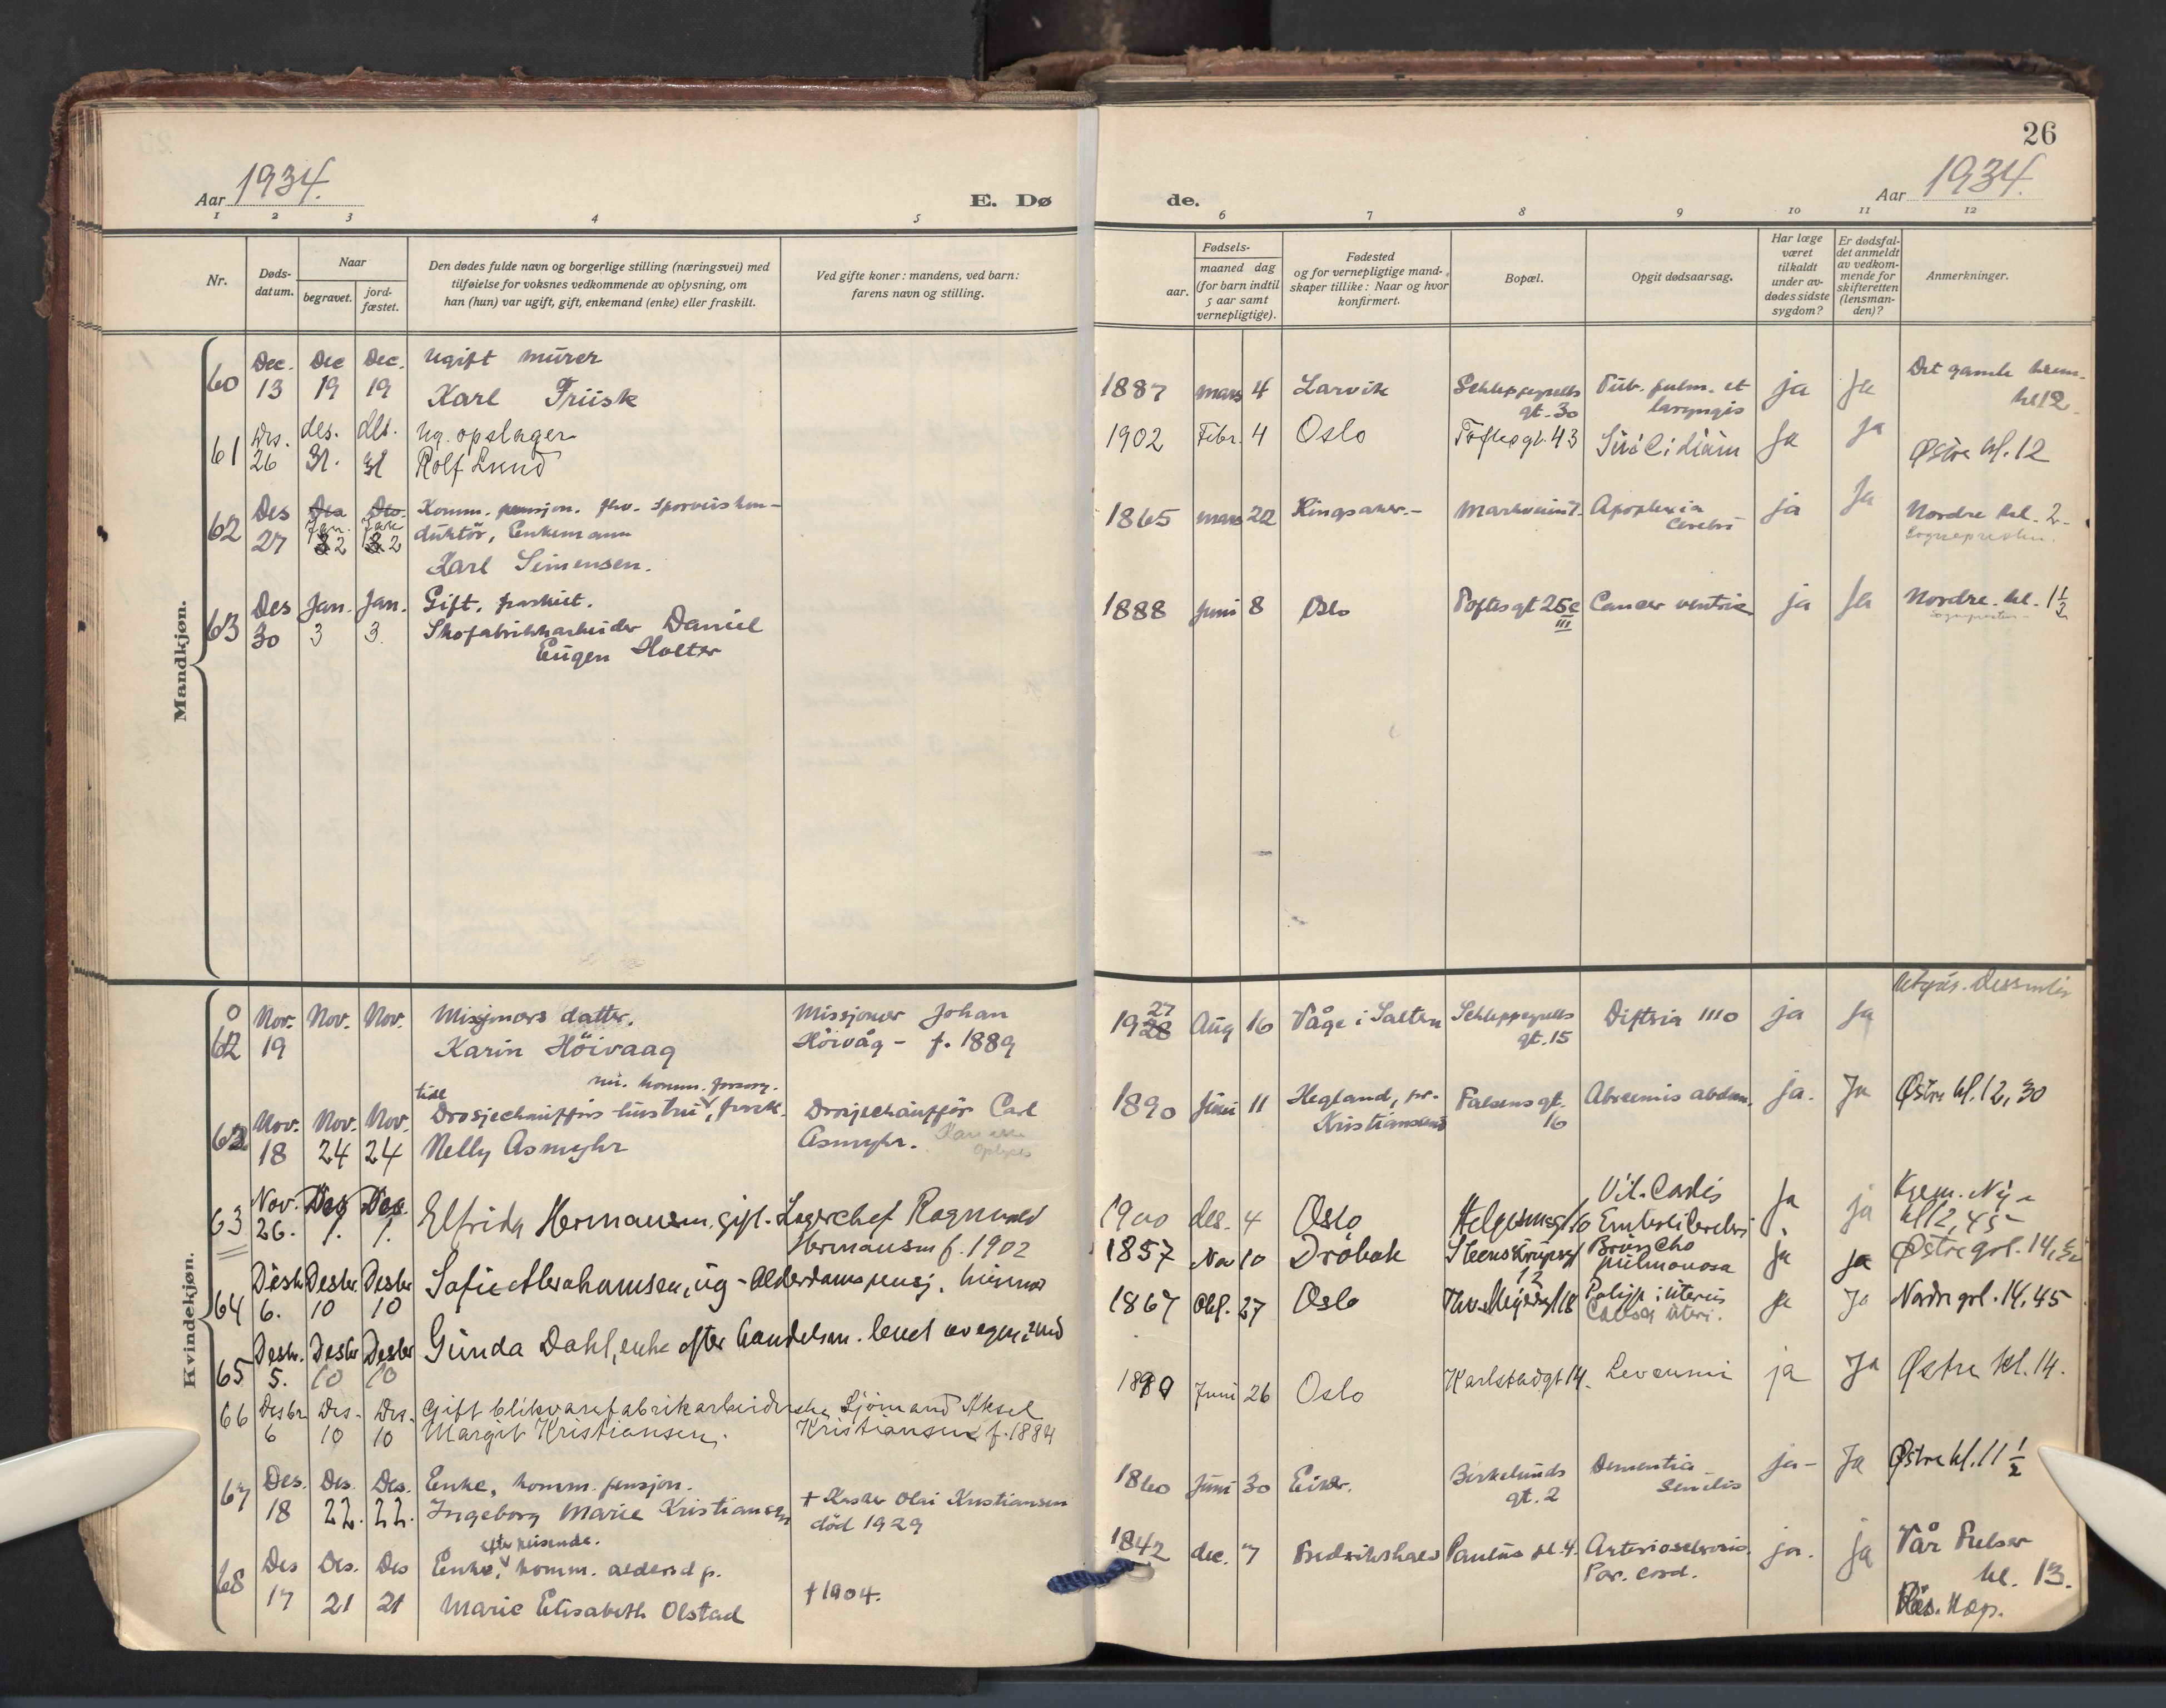 26
Aar 1934.
E. Dø de.
Aar 1934.
1 2 3 4 5 6 7 8 9 10 11 12
Nr.
Døds-
datum.
Naar
begravet.
jord-
fæstet.
Den dødes fulde navn og borgerlige stilling (næringsvei) med
tilføielse for voksnes vedkommende av oplysning, om
han (hun) var ugift, gift, enkemand (enke) eller fraskilt.
Ved gifte koner: mandens, ved barn:
farens navn og stilling.
Fødsels-
aar.
maaned dag
(for barn indtil
5 aar samt
vernepligtige).
Fødested
og for vernepligtige mand-
skaper tillike: Naar og hvor
konfirmert.
Bopæl.
Opgit dødsaarsag.
Har læge
været
tilkaldt
under av-
dødes sidste
sygdom?
Er dødsfal-
det anmeldt
av vedkom-
mende for
skifteretten
(lensman-
den)?
Anmerkninger.
Mandkjøn.
60 Dec. 13 Dec 19 Dec. 19 Ugift murer
Karl Friisk
1887 mars 4 Larvik Schleppegrells gt. 30 Tub. pulm. et laryngis ja Ja Det gamle krem. kl 12
61 Des. 26 des. 31. des. 31 Ug. opslager
Rolf Lund
1902 Febr. 4 Oslo Toftesgt. 43 Suicidium Ja Ja Østre kl. 12
62 Des 27 Des Jan. 2 Des. Jan 2 Komm. pensjon. fhv. sporveiskon-
duktör, Enkemann
Karl Simensen.
1865 mars 22 Ringsaker.- Markveien 7. Apoplexia Cerebri ja Ja Nordre kl. 2.
Sognepresten.
63 Des 30 Jan. 3 Jan. 3. Gift, fraskilt.
Skofabrikkarbeider Daniel
Eugen Holter
1888 Juni 8 Oslo Toftesgt 25c III Cancer ventric ja Ja Nordre. kl. 1 1/2
Sognepresten
Kvindekjøn.
0
62 Nov. 19 Nov. Nov. Misjonærs datter.
Karin Höivaag
Missjonær Johan
Höivåg - f. 1889
1928 27 Aug 16 Våge i Salten Schleppegrells gt. 15 Diftria 1110 ja Ja
63 Nov. 18 Nov. 24 Nov. 24 tidl. Drosjechaufførs hustru, nu. komm. forsorg. frask.
Nelly Asmyhr
Drosjechauffør Carl
Asmyhr.
1890 Juni 11 Hegland, pr. Kristiansand Falsens gt. 16 ja. Ja Østre kl. 12,30
63 Nov. 26. Des 1. Des. 1. Elfrida Hermansen, gift. Lagerchef Ragnvald
Hermansen f. 1902
1900 des. 4 Oslo Helgesensgt. Vit. Cordis Ja ja Krem. Nye
kl 12,45
64 Desbr. 6. Desbr. 10 Desbr 10 Sofie Abrahamsen, ug - Alderdomspensj.
1857 Nov 10 Drøbak Steenstrupsgt 12 Broncho pulmonosa ja ja
65 Desbr. 5. Desbr 10 Desbr 10 Gunda Dahl, enke efter handelsm.
1867 Okt. 27 Oslo Thv. Meyersgt 18 Polypp i uterus
Cancer uteri. ja Ja Nordre grl. 14.45
66 Desbr 6 Des. 10 Des. 10 Gift blikvarefabrikarbeiderske
Margit Kristiansen.
Sjömand Aksel
Kristiansen f. 1884
1890 Juni 26 Oslo Karlstadgt 14. Levcemi ja Ja Østre kl. 14.
67 Des. 18 Des. 22. Des. 22. Enke, komm. pensjon.
Ingeborg Marie Kristiansen
† Kusker Olai Kristiansen
död 1929
1860 Juni 30 Eidsv. Birkelunds gt. 2 Dementia Senilis ja - Ja Østre kl. 11 1/2
68 Des 17 Des. 21 Des 21 Enke, efter reisende. komm. aldersd p.
Marie Elisabeth Olstad
† 1904.
1842 dec. 7 Fredrikshald Paulus pl. 4. Arteriosclerosis.
Par. cord. ja. ja Vår Frelser
kl. 13.
Res. Kap.